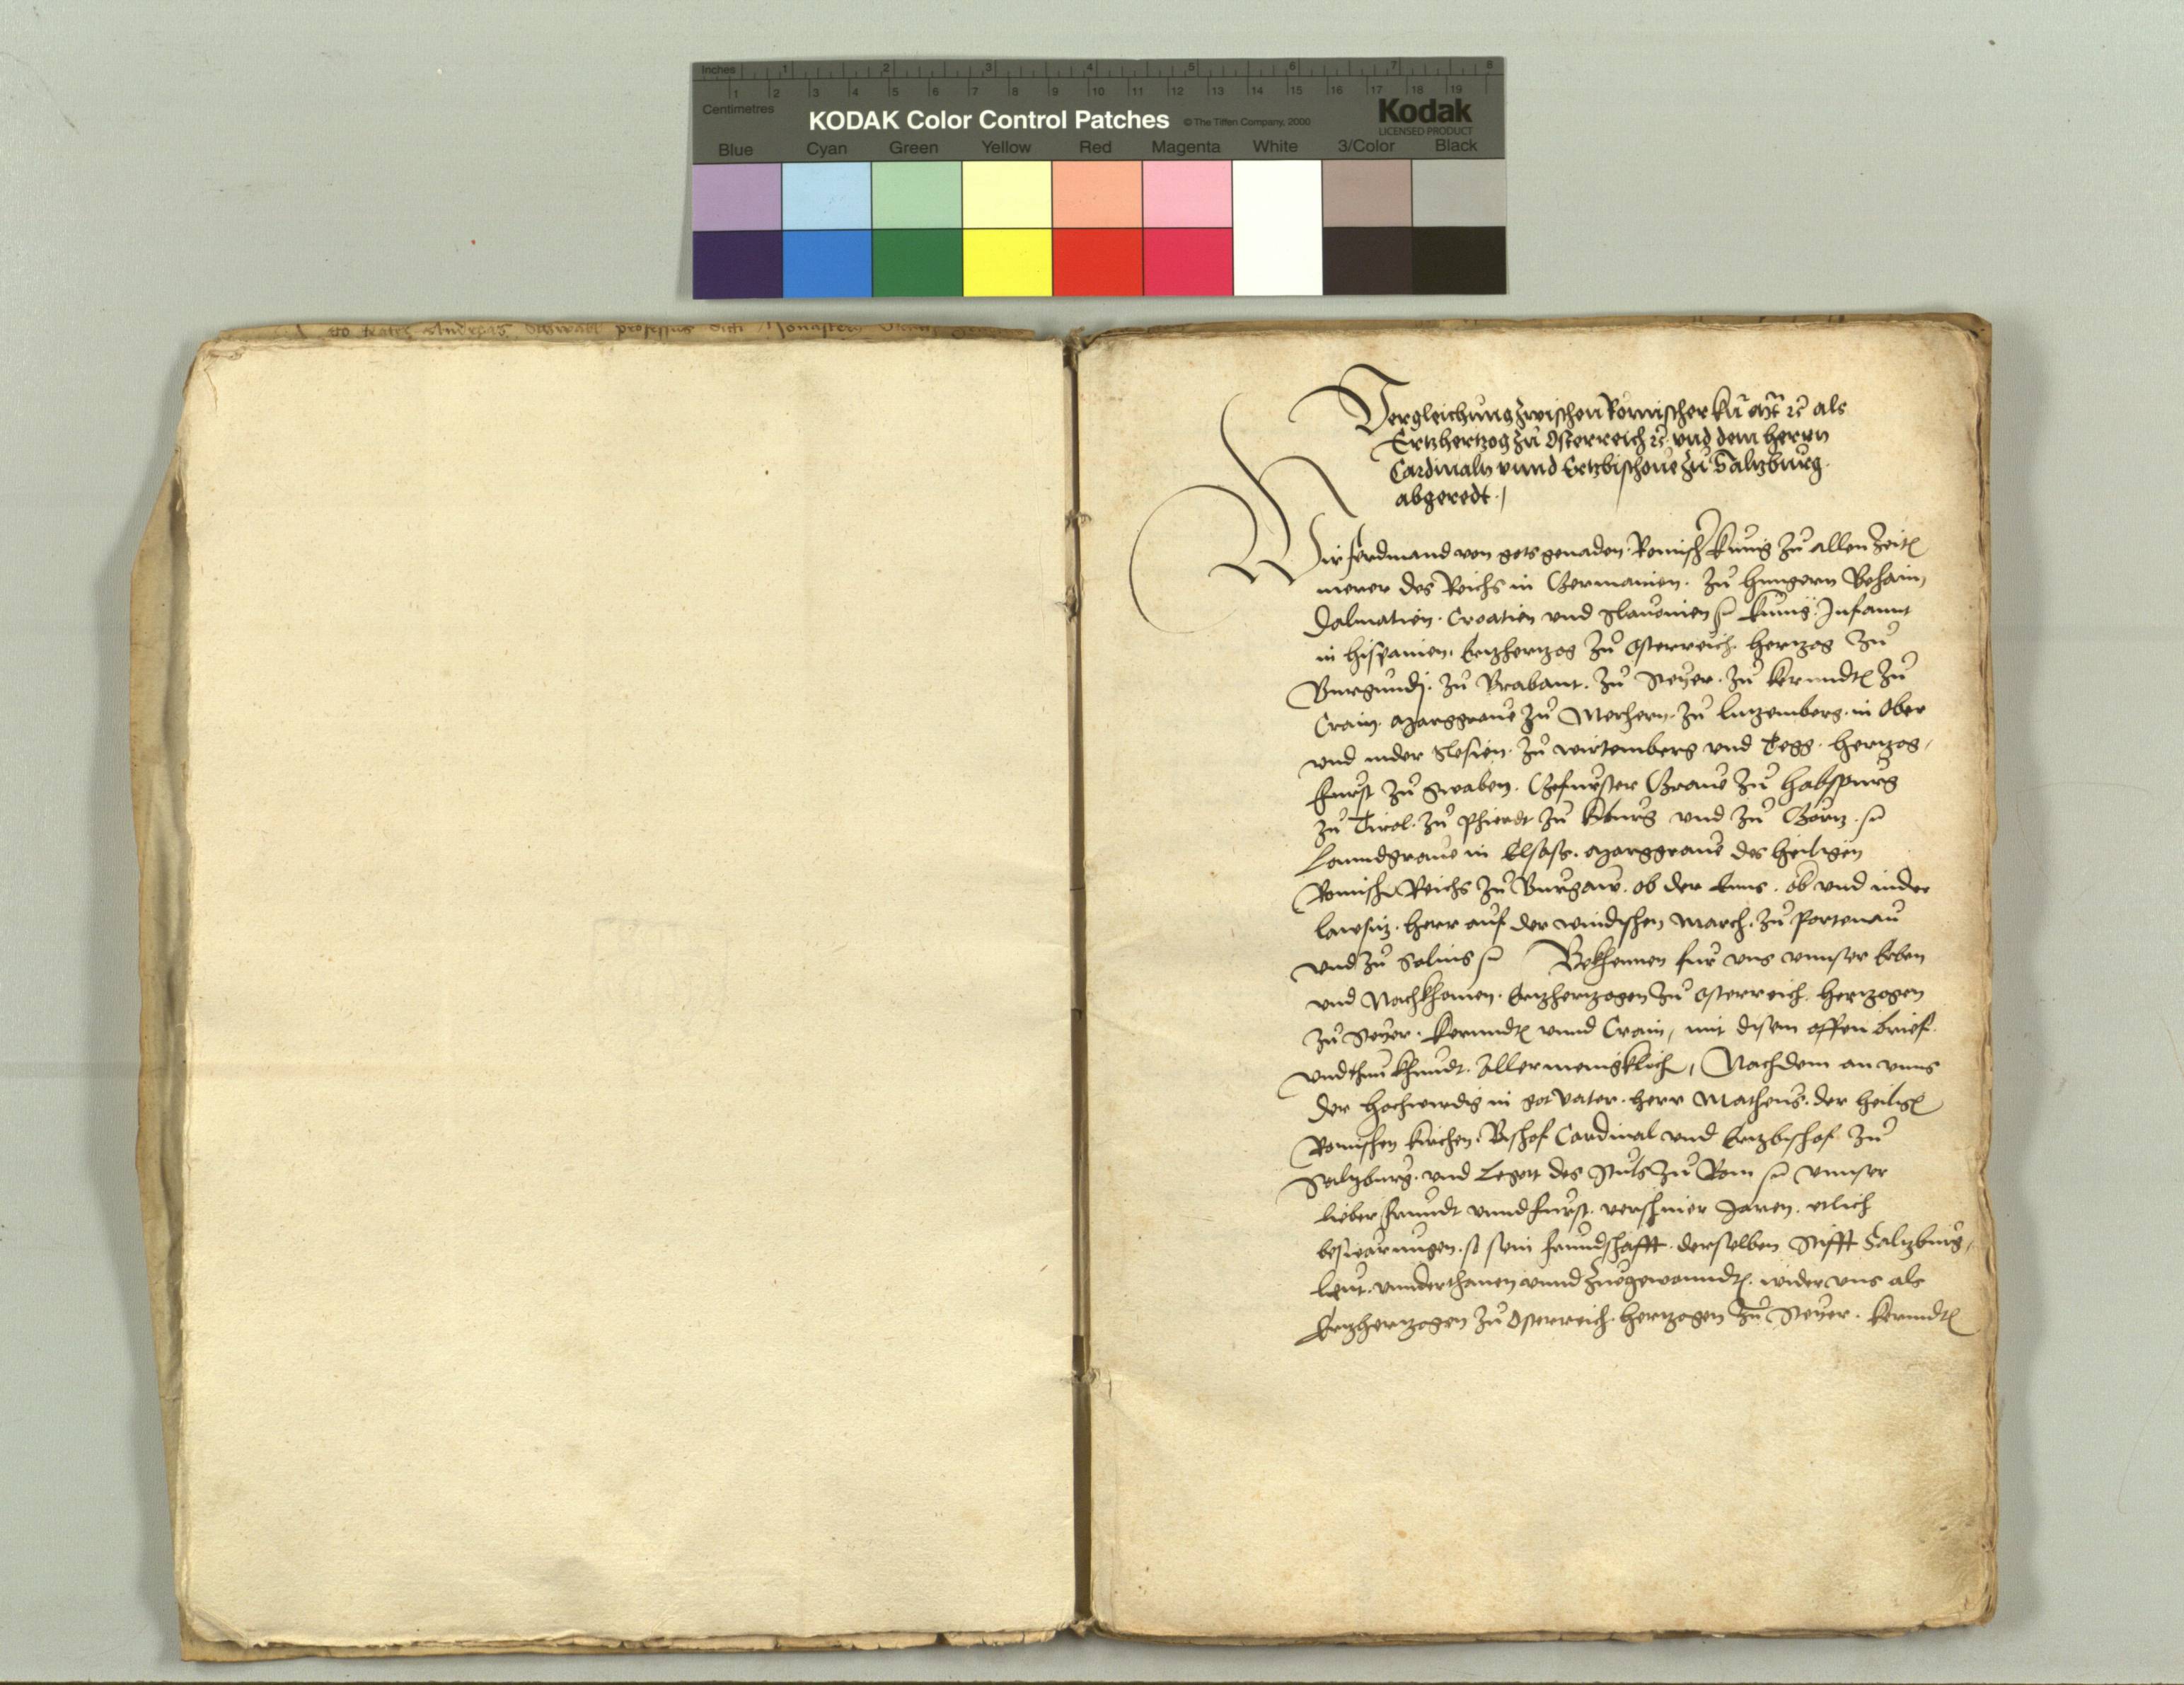 Inches 1 2 3 4 5 6 7 8
1 2 3 4 5 6 7 8 9 10 11 12 13 14 15 16 17 18 19
Centimetres
KODAK Color Control Patches © The Tiffen Company, 2000 Kodak
LICENSED PRODUCT
Blue Cyan Green Yellow Red Magenta White 3/Color Black
professus dicti Monasterij
Vergleichung zwischen Romischer Ku Mt ꝛc als
Ertzhertzog zu Osterreich ꝛc vnd dem herrn
Cardinaln vnnd Ertzbischoue zu Saltzburg
abgeredt.
Wir ferdinand von gots genaden. Romisch kunig zu allen zeitn
merer des Reichs in Germanien. zu Hungern Behaim
Dalmatien. Croatien vnd Slauonien ꝛc kunig. Infannt
in hispanien. Ertzhertzog zu Osterreich. hertzog zu
Burgundj. zu Brabant. zu Steyer. zu kernndtn zu
Crain. Marggraue zu Merhern. zu lutzemberg. in Ober
vnd nider Slesien. zu wirtemberg vnd Tegg. hertzog,
Furst zu Swaben. Gefurster Graue zu habspurg
zu Tirol. zu Phierdt zu kiburg vnd zu Gortz ꝛc
Lanndgraue in Elsass. Marggraue des heiligen
Romischn Reichs zu Burgaw. ob der Enns. ob vnd nider
lawsitz. herr auf der windischen march. zu Portenau
vnd zu Salins ꝛc Bekhennen fur vns vnnser Erben
vnd Nachkhomen. Ertzhertzogen zu Osterreich. hertzogen
zu Steyer. kernndtn vnnd Crain, mit disem offen brief
vnd thun khundt. Allermenigklich, Nachdem an vnns
der hochwirdig in got vater. herr Matheus. der heilign
Romischen kirchen. Bischof Cardinal vnd Ertzbischof zu
Saltzburg. vnd Legatt des Stuls zu Rom ꝛc vnnser
lieber frundt vnnd furst. verschiner Jaren. etlich
beswarungen. so sein frundschafft. derselben Stifft Saltzburg,
leut. vnnderthanen vnnd zuegewanndtn. wider vns als
Ertzhertzogen zu Osterreich. hertzogen zu Steyer. kernndtn